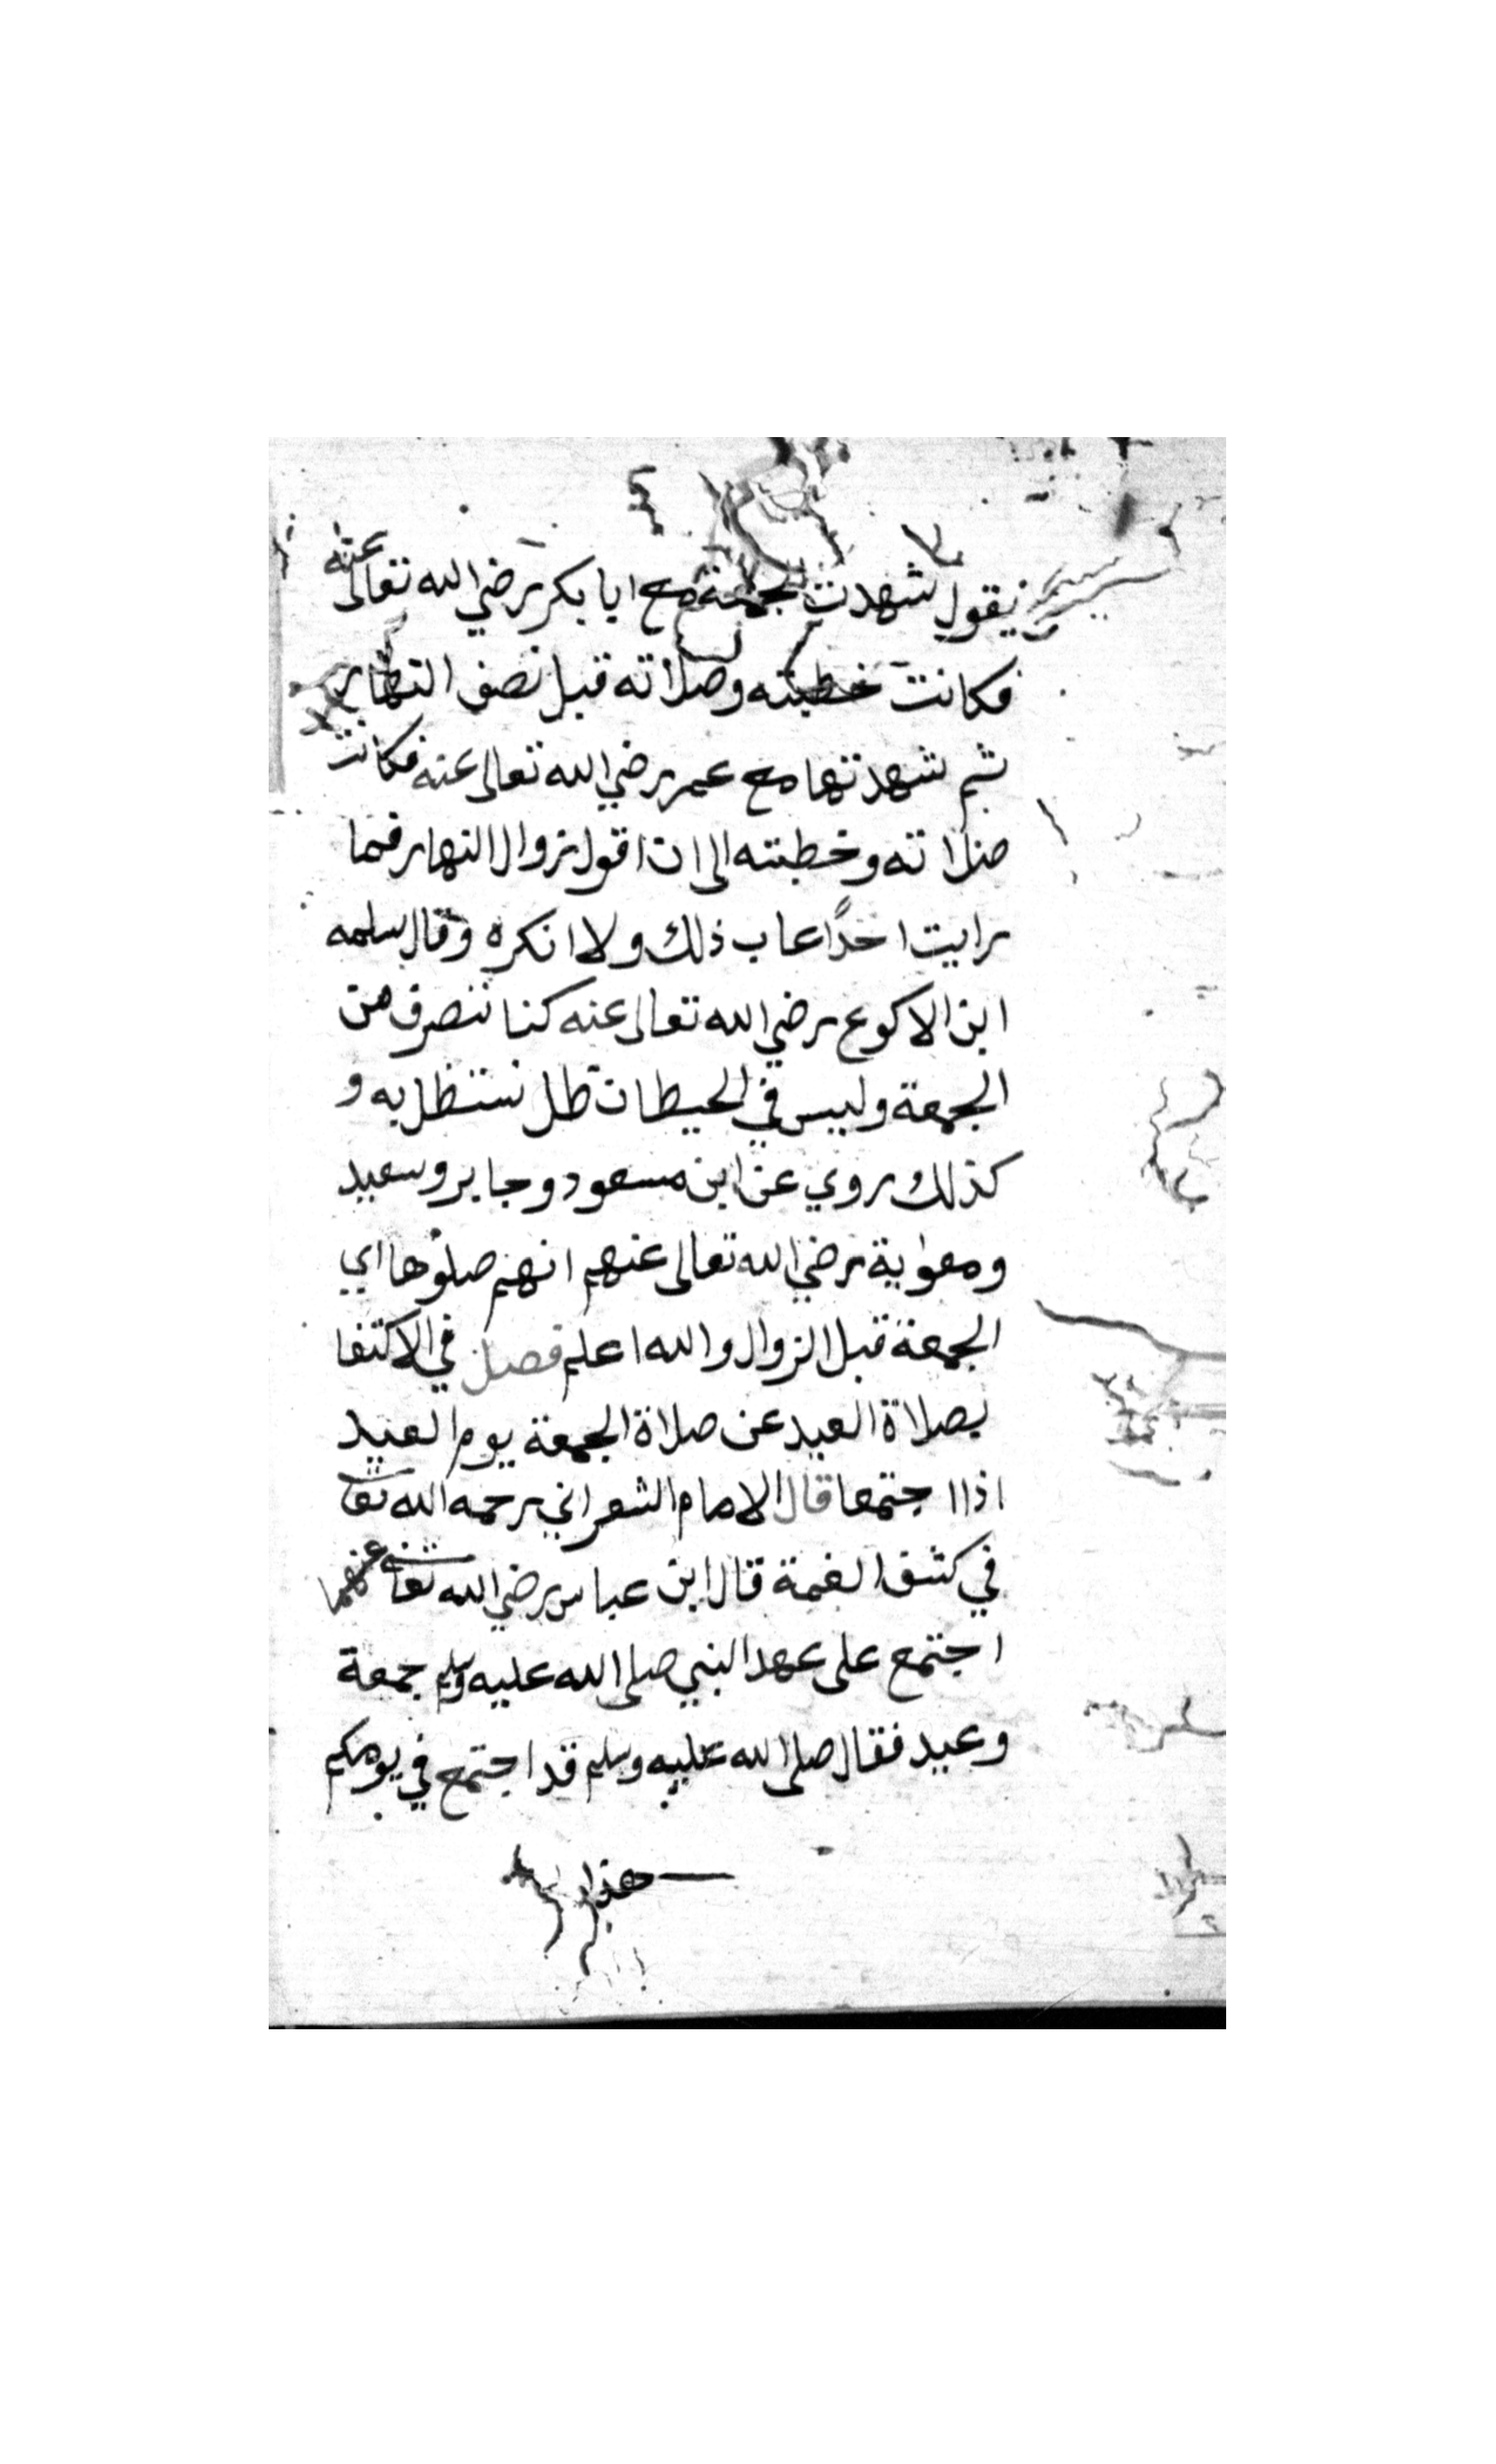 يقول شهدت الجمعة مع ابا بكر رضي الله تعالى عنه
فكانت خطبته وصلاته قبل نصف النهار
ثم شهدتها مع عمر رضي الله تعالى عنه فكانت
صلاته وخطبته الى ان اقول زوال النهار فما
رايت احدًا عاب ذلك ولا انكره وقال سلمه
ابن الاكوع رضي الله تعالى عنه كنا ننصرف من
الجمعة وليس في الحيطان ظل نستظل به و
كذلك روي عن ابن مسعود وجابر وسعيد
ومعوية رضي الله تعالى عنهم انهم صلوها اي
الجمعة قبل الزوال والله اعلم فصل في الاكتفا
بصلاة العيد عن صلاة الجمعة يوم العيد
اذا اجتمعا قال الامام الشعراني رحمه الله تعا
في كشف الغمة قال ابن عباس رضي الله تعا عنهما
اجتمع على عهد النبي صلى الله عليه وسلم جمعة
وعيد فقال صلى الله عليه وسلم قد اجتمع في يومكم
هذا